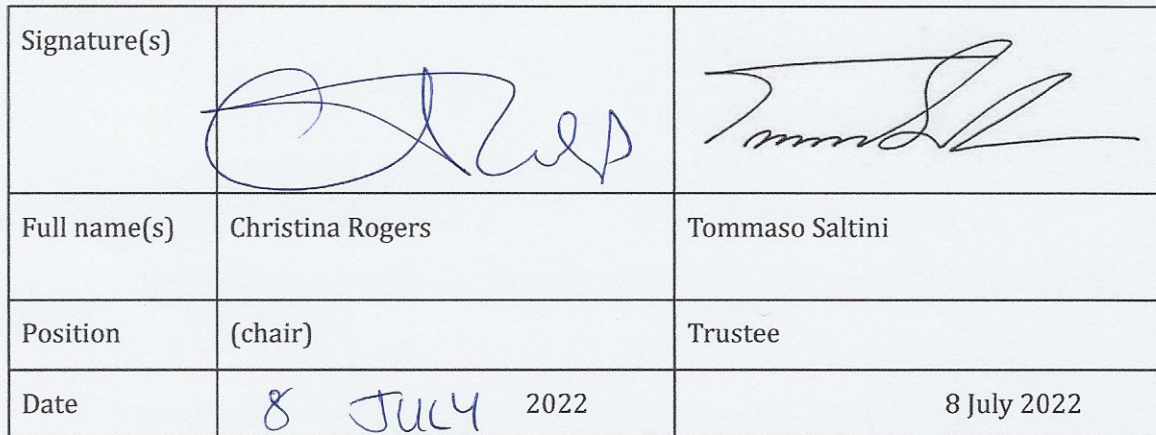 Signature(s)
Full name(s) Christina Rogers Tommaso Saltini
Position (chair) Trustee
Date 8 JULY 2022 8 July 2022